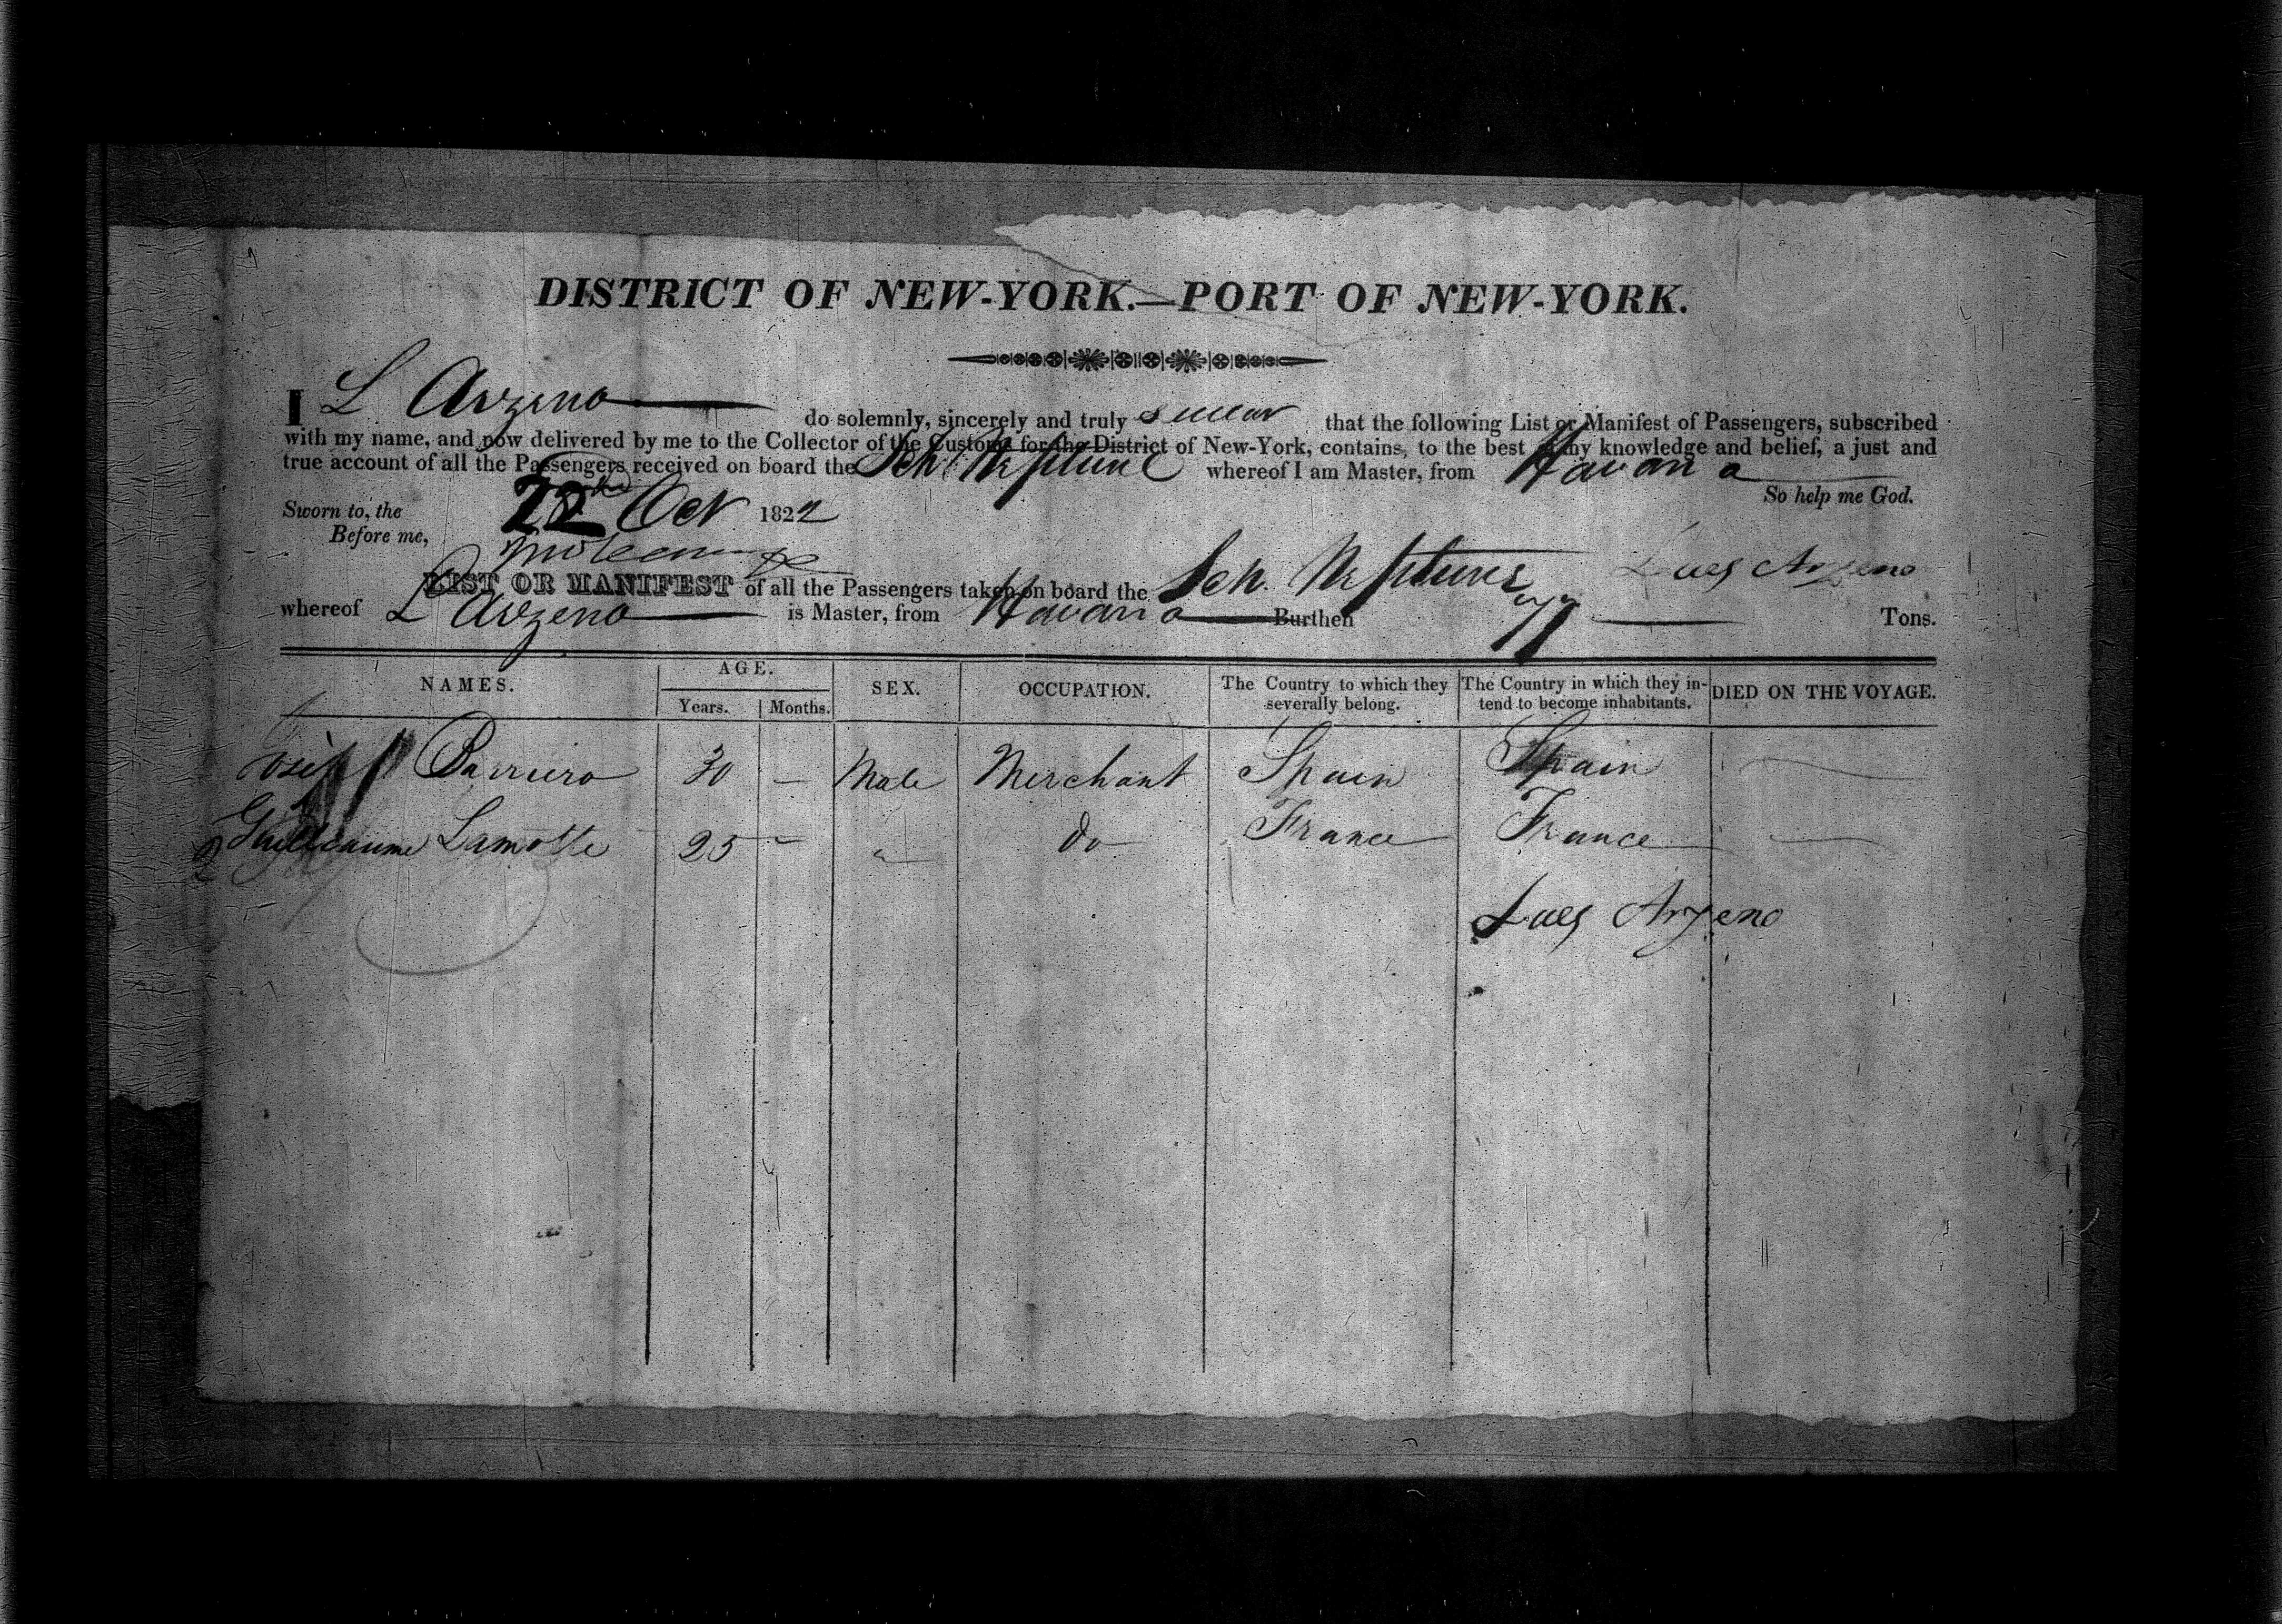 DISTRICT OF NEW-YORK.—PORT OF NEW-YORK.
I L Arzeno do solemnly, sincerely and truly swear that the following List or Manifest of Passengers, subscribed
with my name, and now delivered by me to the Collector of the Customs for the District of New-York, contains, to the best of my knowledge and belief, a just and
true account of all the Passengers received on board the Sch Neptune whereof I am Master, from Havana
So help me God.
Sworn to, the 22nd Oct 1822
Before me,
Luis Arzeno
LIST OR MANIFEST of all the Passengers taken on board the Sch. Neptune
whereof L Arzeno is Master, from Havana Burthen Tons.
NAMES. AGE. Years. Months. SEX. OCCUPATION. The Country to which they severally belong. The Country in which they intend to become inhabitants. DIED ON THE VOYAGE.
Joseph Barriero 30 — Male Merchant Spain Spain —
2 Guilleaume Lamotte 25 - " do France France —
Luis Arzeno